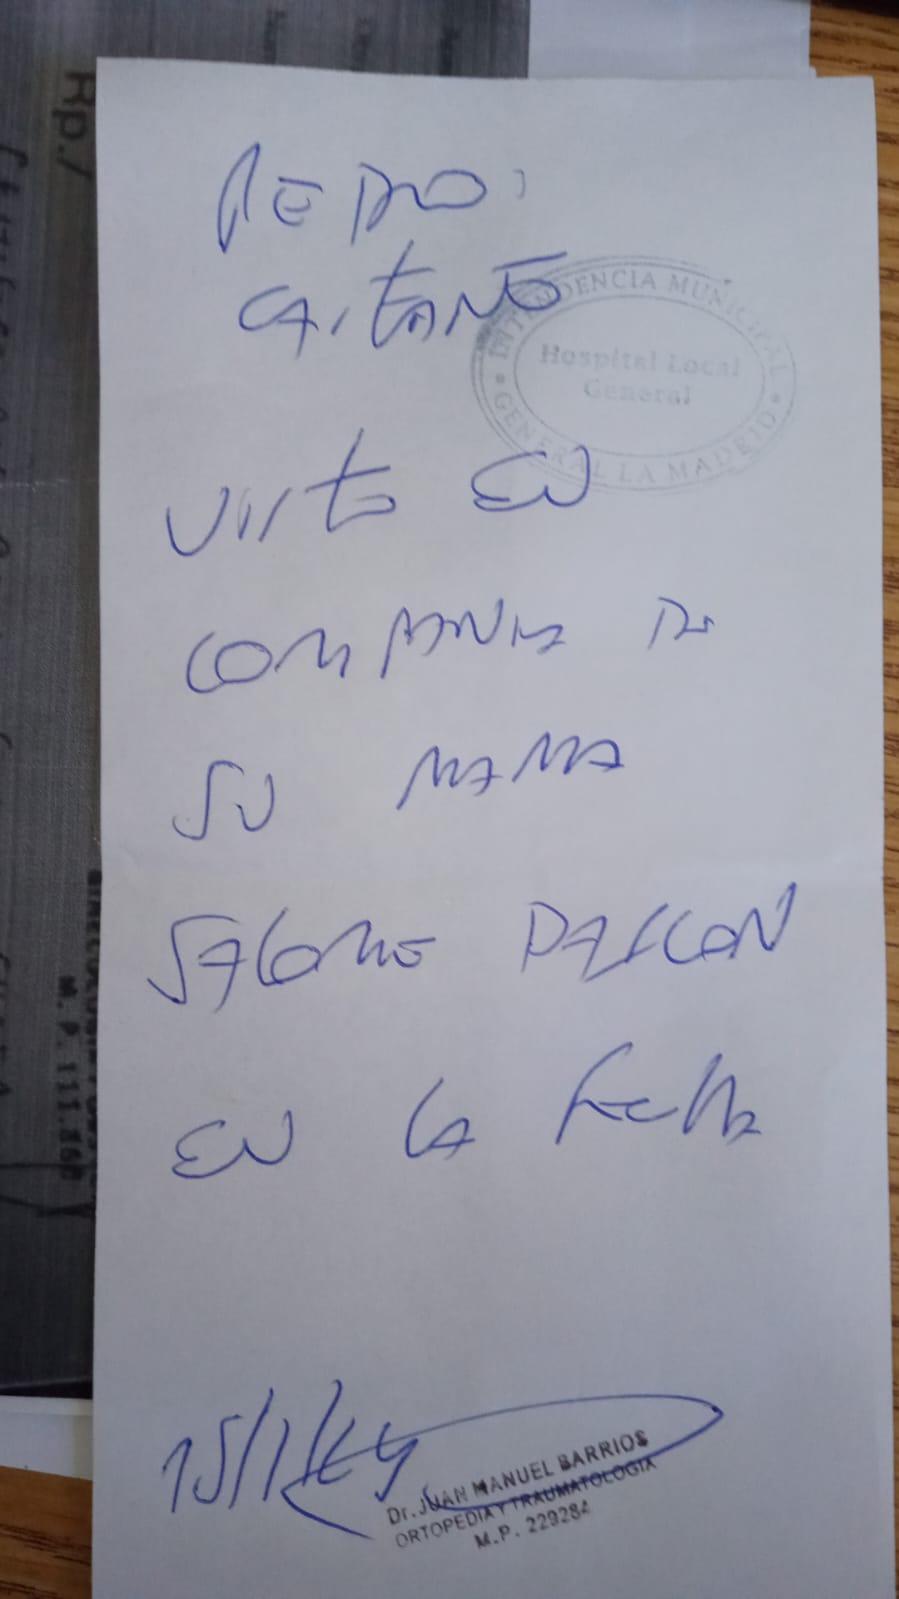 PEDRO:
CAITANO
INTENDENCIA MUNICIPAL
Hospital Local
General
GENERAL LA MADRID
VISTO EN
COMPANIA DE
SU MAMA
SALOME PASCON
EN LA FECHA
15/1/24
Dr. JUAN MANUEL BARRIOS
ORTOPEDIA Y TRAUMATOLOGIA
M.P. 229284
Rp./
M. P. 111.860